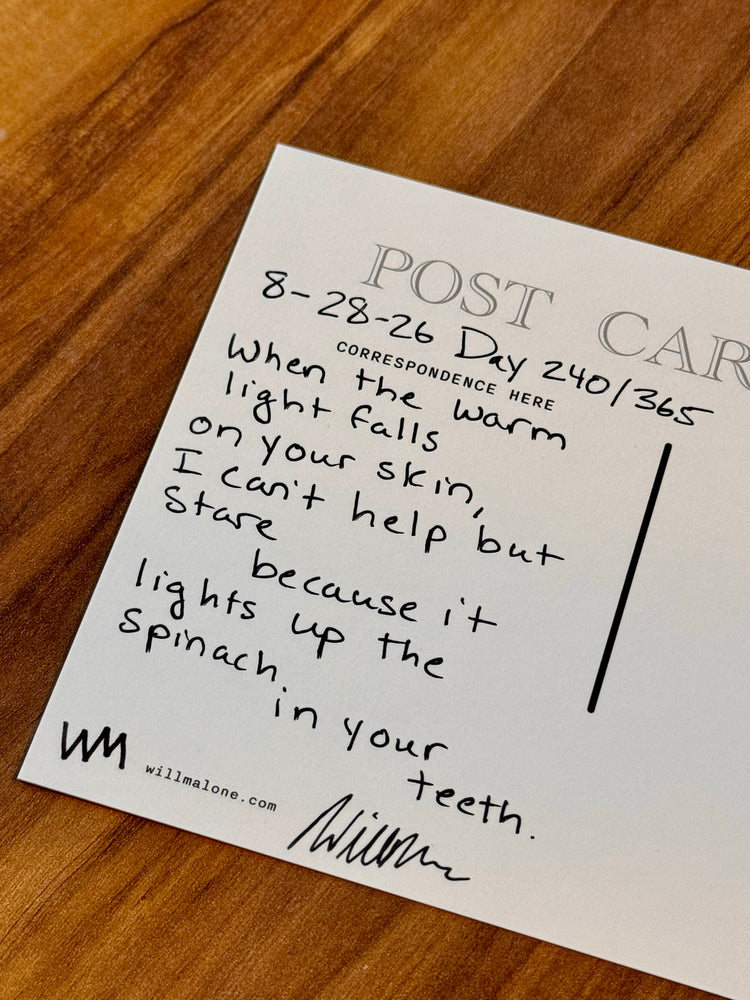 POST CAR
8-28-26 Day 240/365
CORRESPONDENCE HERE
When the warm
light falls
on your skin,
I can't help but
stare
because it
lights up the
spinach
in your
teeth.
WM
willmalone.com